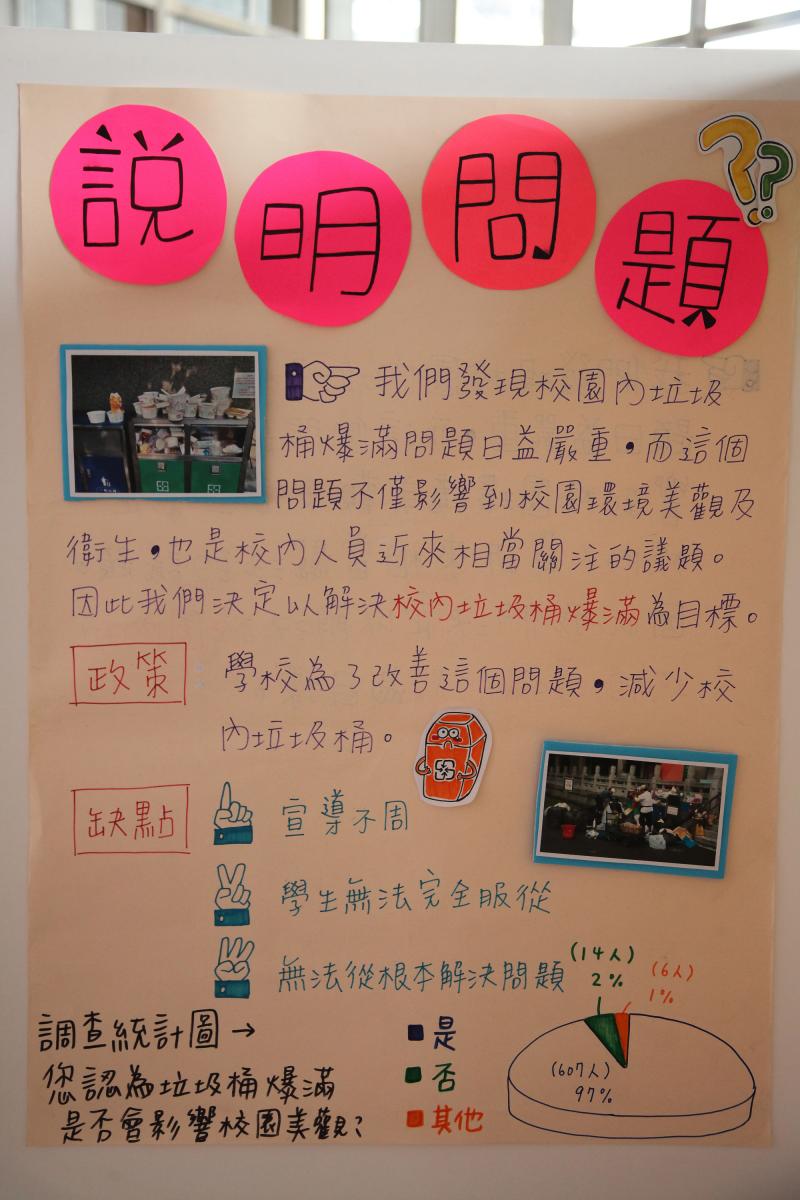 說明問題
我們發現校園內垃圾
桶爆滿問題日益嚴重，而這個
問題不僅影響到校園環境美觀及
衛生，也是校內人員近來相當關注的議題。
因此我們決定以解決校內垃圾桶爆滿為目標。
政策：學校為了改善這個問題，減少校
內垃圾桶。
缺點 宣導不周
學生無法完全服從
無法從根本解決問題
(14人)
2%
(6人)
1%
(607人)
97%
調查統計圖→
您認為垃圾桶爆滿
是否會影響校園美觀?
是
否
其他